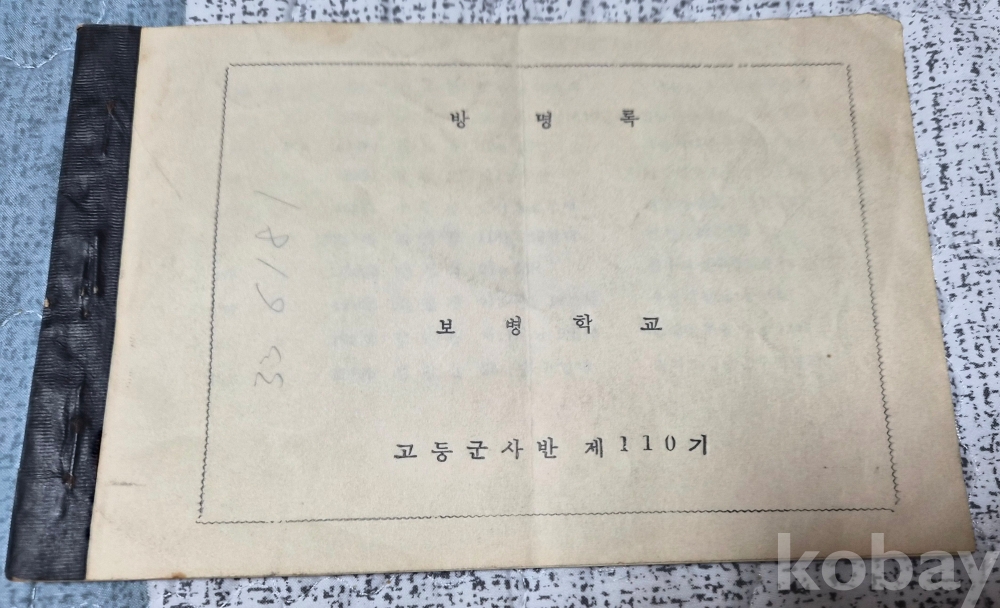 방 명 록
보 병 학 교
고등군사반 제110기
kobay